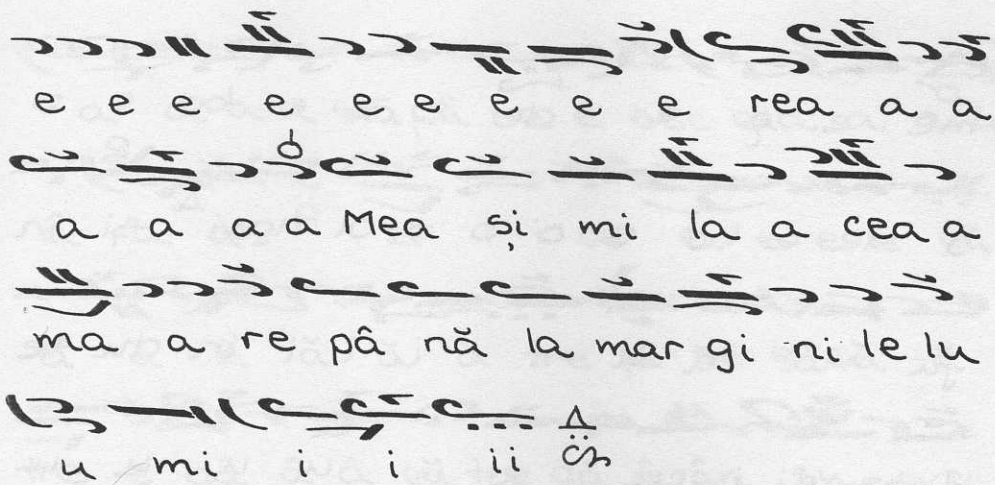 e e e e e e e e e rea a a
a a a a Mea și mi la a cea a
ma a re pâ nă la mar gi ni le lu
u mi i i ii